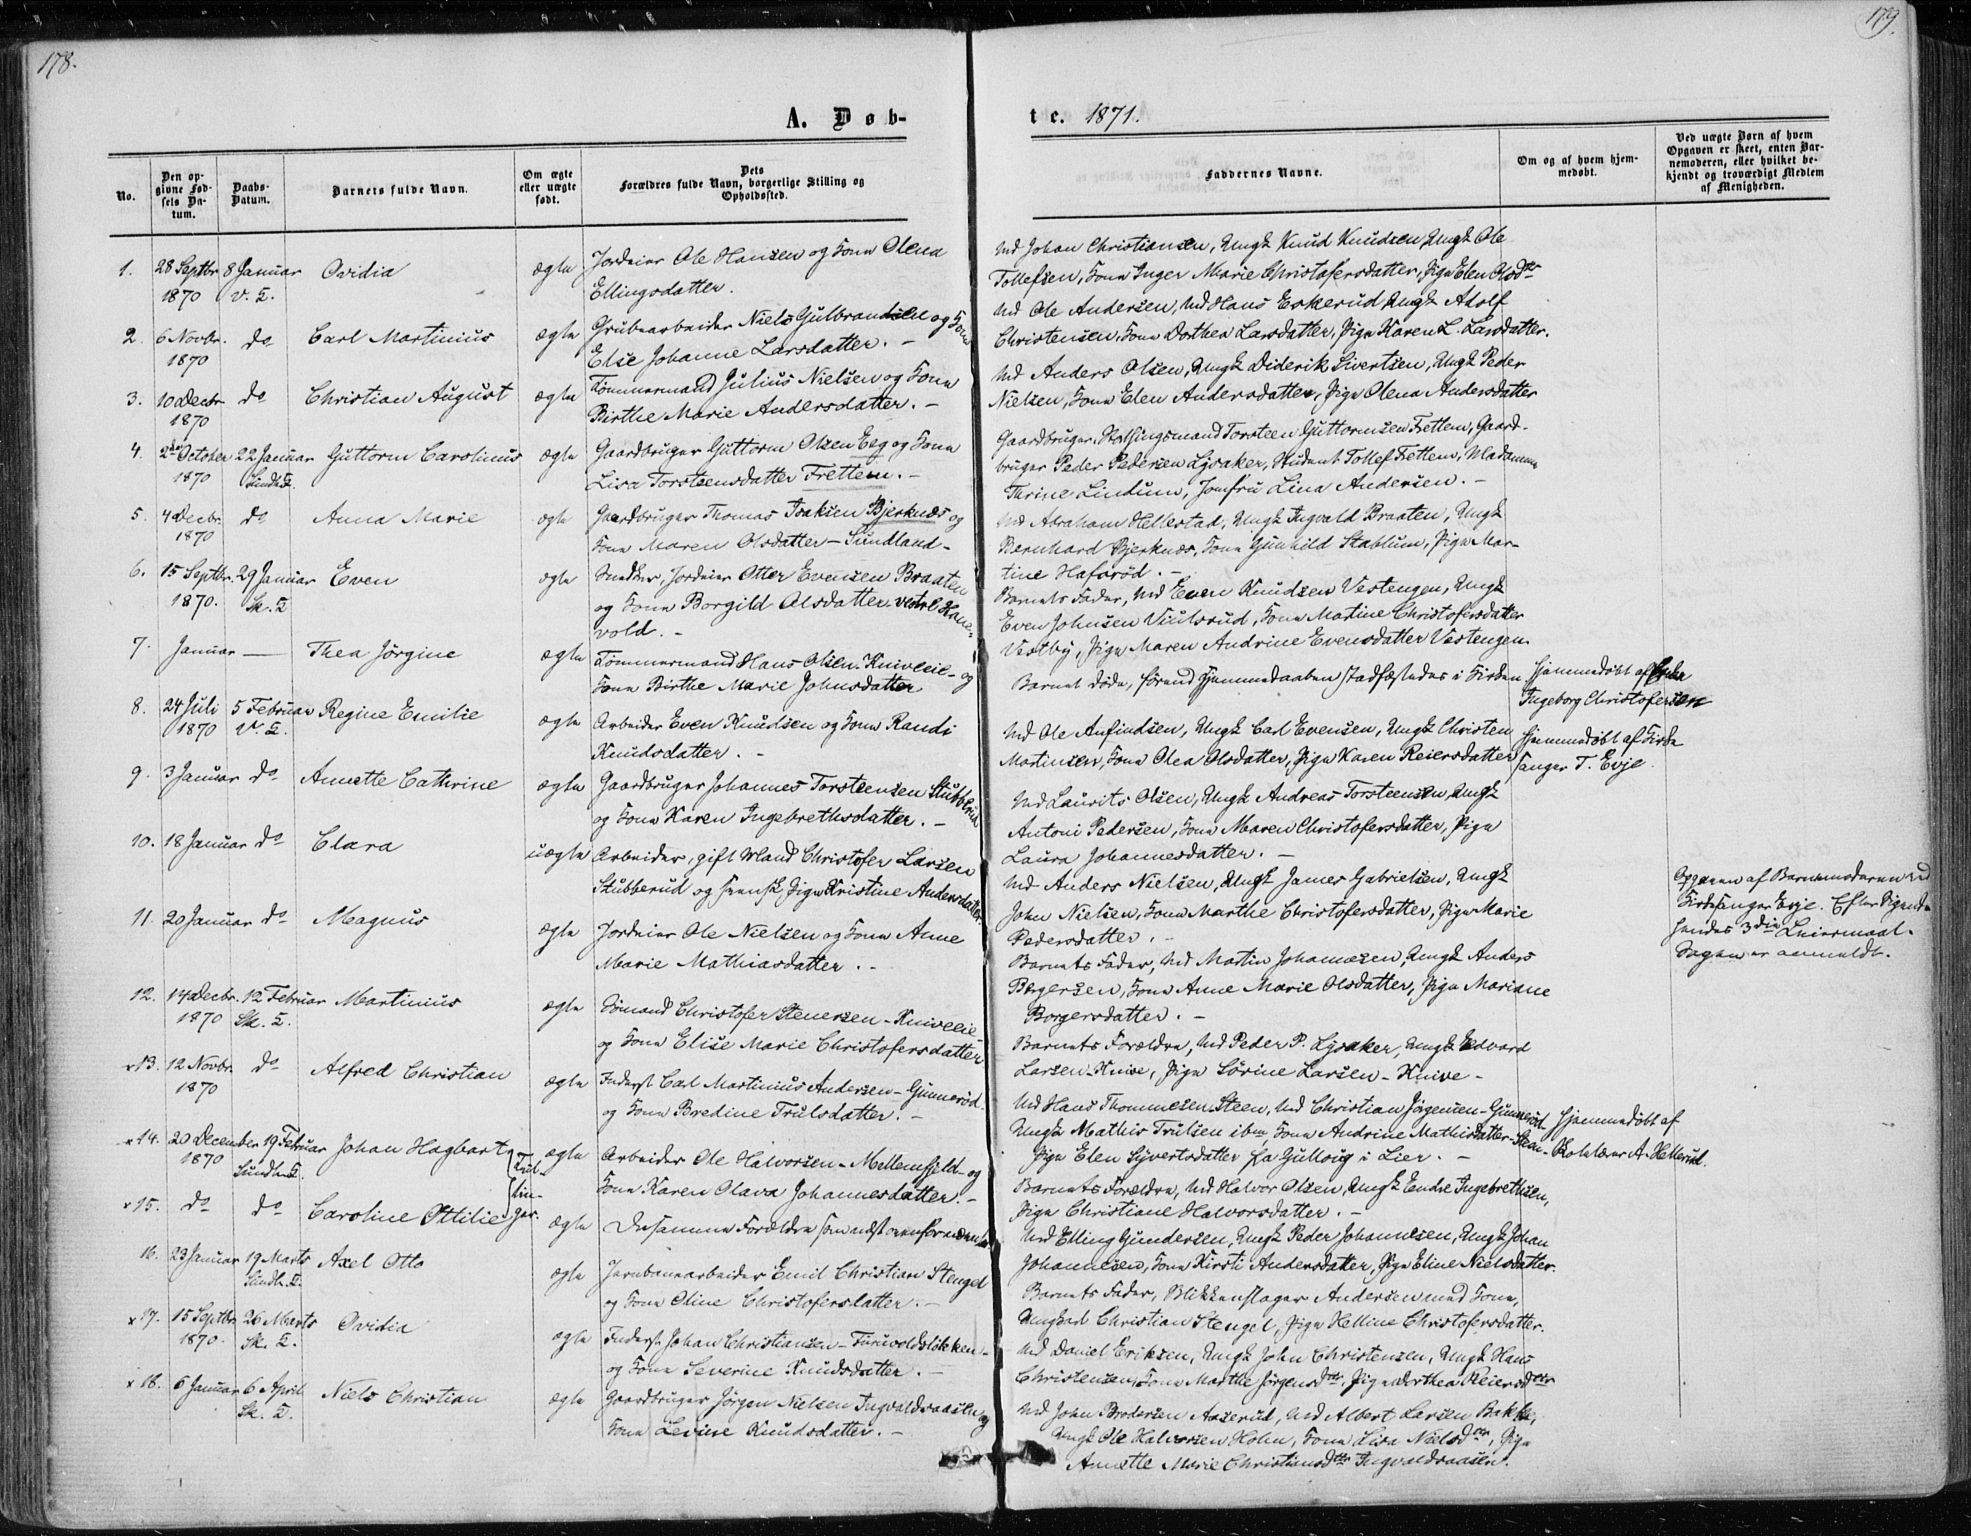 178.
179.
A. Døb-
te. 1871.
No.
Den op-
givne Fød-
sels Da-
tum.
Daabs-
Datum.
Barnets fulde Navn.
Om ægte
eller uægte
født.
Dets
Forældres fulde Navn, borgerlige Stilling og
Opholdssted.
Faddernes Navne.
Om og af hvem hjem-
medøbt.
Ved uægte Børn af hvem
Opgaven er skeet, enten Bar-
nemoderen, eller hvilket be-
kjendt og troværdigt Medlem
af Menigheden.
1. 28 Septbr 8 Januar Ovidia ægte Jordeier Ole Hansen og Kone Olena
1870 V. K. Ellingsdatter.
2. 6 Novbr. do Carl Martinius ægte Grubearbeider Niels Gulbrandsen og Kone
1870 Elise Johanne Larsdatter. -
3. 10 Decbr do Christian August ægte Tømmermand Julius Nielsen og Kone
1870 Birthe Marie Andersdatter. -
4. 2den October 22 Januar Guttorm Carolinus ægte Gaardbruger Guttorm Olsen Eeg og Kone
1870 Sundh. K. Lisa Torsteensdatter Frettem. -
5. 4 Decbr. do Anna Marie ægte Gaardbruger Thomas Isaksen Bjerknæs og
1870 Kone Maren Olsdatter - Sundland -
6. 15 Septbr. 29 Januar Even ægte Snedker, Jordeier Otter Evensen Braaten
1870. Sk. K og Kone Borgild Olsdatter vestre Haner-
vold. -
7. Januar — Thea Jörgine ægte Tømmermand Hans Olsen Kniveeie - og
Kone Birthe Marie Johnsdatter
8. 24 Juli 5 Februar Regine Emilie ægte Arbeider Even Knudsen og Kone Randi
1870 V. K. Knudsdatter. -
9. 3 Januar do Annette Cathrine ægte Gaardbruger Johannes Torsteensen Stubberud
og Kone Karen Ingebrethsdatter. -
10. 18 Januar do Clara uægte Arbeider, gift Mand Christofer Larsen
Stubberud og svensk Pige Kristine Andersdatter.
11. 20 Januar do Magnus ægte Jordeier Ole Nielsen og Kone Anne
Marie Mathiasdatter. -
12. 14 Decbr. 12 Februar Martinius ægte Sømand Christofer Stenersen - Kniveeie
1870 Sk. K. og Kone Elise Marie Christofersdatter
x13. 12 Novbr. do Alfred Christian ægte Inderst Carl Martinius Andersen - Gunnerød
1870 og Kone Bredine Trulsdatter. -
x14. 20 December 19 Februar Johan Hagbart ægte Arbeider Ole Halvorsen - Mellemfjeld - og
1870 Sundh. K. Tvil- Kone Karen Olava Johannesdatter. -
x15. do do Caroline Ottilie lin-ger. ægte De samme Forældre som næst ovenfor nævnte
16. 23 Januar 19 Marts Axel Otto ægte Jernbanearbeider Emil Christian Stengel
Sundh. K. og Kone Oline Christofersdatter. -
x17. 15 Septbr 26 Marts Ovidia ægte Inderst Johan Christiansen - Turivoldsløkken -
1870. Sk. K. og Kone Severine Knudsdatter. -
x18. 6 Januar 6 April Niels Christian ægte Gaardbruger Jørgen Nielsen Ingvaldsaasen og
Sk. K. Kone Levine Knudsdatter. -
Md Johan Christiansen, Ungk Knud Knudsen, Ungk Ole
Tollefsen, Kone Inger Marie Christofersdatter, Pige Elen Olsdtr
Md Ole Andersen, Md Hans Eskerud, Ungk Adolf
Christensen, Kone Dorthea Larsdatter, Pige Karen L. Larsdatter.
Md Anders Olsen, Ungk Diderik Sivertsen, Ungk Peder
Nielsen, Kone Elen Andersdatter, Pige Olena Andersdatter
Gaardbruger, Storthingsmand Torsteen Guttormsen Frettem, Gaard-
bruger Peder Pedersen Lysaker, Student Tollef Frettem, Madamme
Thrine Lindum, Jomfru Lina Andersen. -
Md Abraham Hellestad, Ungk Ingvald Braaten, Ungk
Bernhard Bjerknæs, Kone Gunhild Stablum, Pige Mar-
tine Hafsrød. -
Barnets Fader, Md Even Knudsen Vestengen, Ungk
Even Johnsen Viulsrud, Kone Matine Christofersdatter
Vestby, Pige Maren Andrine Evensdatter Vestengen.
Barnet døde, førend Hjemmedaaben stadfæstedes i Kirken Hjemmedøbt af Enke
Ingeborg Christofersen
Md Ole Anfindsen, Ungk Carl Evensen, Ungk Christen Hjemmedøbt af Kirke
Martinsen, Kone Olea Olsdatter, Pige Karen Reiersdatter sanger T. Evje.
Md Laurits Olsen, Ungk Andreas Torsteensen, Ungk
Antoni Pedersen, Kone Maren Christofersdatter, Pige
Laura Johannesdatter. -
Md Anders Nielsen, Ungk James Gabrielsen, Ungk
John Nielsen, Kone Marthe Christofersdatter, Pige Marie
Pedersdatter. -
Opgaven af Barnemoderen ved
Kirkesanger Evje. Efter Sigende
hendes 3die Leiermaal.
Sagen er anmeldt.
Barnets Fader, Md Martin Johannesen, Ungk Anders
Borgersen, Kone Anne Marie Olsdatter, Pige Mariane
Borgersdatter. -
Barnets Forældre, Md Peder P. Lysaker, Ungk Edvard
Larsen Knive, Pige Sörine Larsen - Knive -
Md Hans Thommesen Steen, Md Christian Jørgensen - Gunnerød Hjemmedøbt af
Ungk Mathis Trulsen ibm, Kone Andrine Mathisdatter - Steen - Skolelærer A. Hellerud.
Pige Elen Syvertsdatter fra Gulloug i Lier. -
Barnets Forældre, Md Halvor Olsen, Ungk Endre Ingebrethsen,
Pige Christiane Halvorsdatter. -
Md Elling Gundersen, Ungk Peder Johannesen, Ungk Johan
Johannesen, Kone Kirsti Andersdatter, Pige Eline Nielsdatter.
Barnets Fader, Blikkenslager Andersen med Kone,
Ungkarl Christian Stengel, Pige Helline Christofersdatter.
Md Daniel Eriksen, Ungk John Christensen, Ungk Hans
Christensen, Kone Marthe Jørgensdtr, Pige Dorthea Reiersdtr
Md John Brodersen Aaserud, Md Albert Larsen Bakke,
Ungk Ole Halvorsen Holm, Kone Lisa Nielsdtr, Pige
Annette Marie Christiansdtr Ingvaldsaasen.